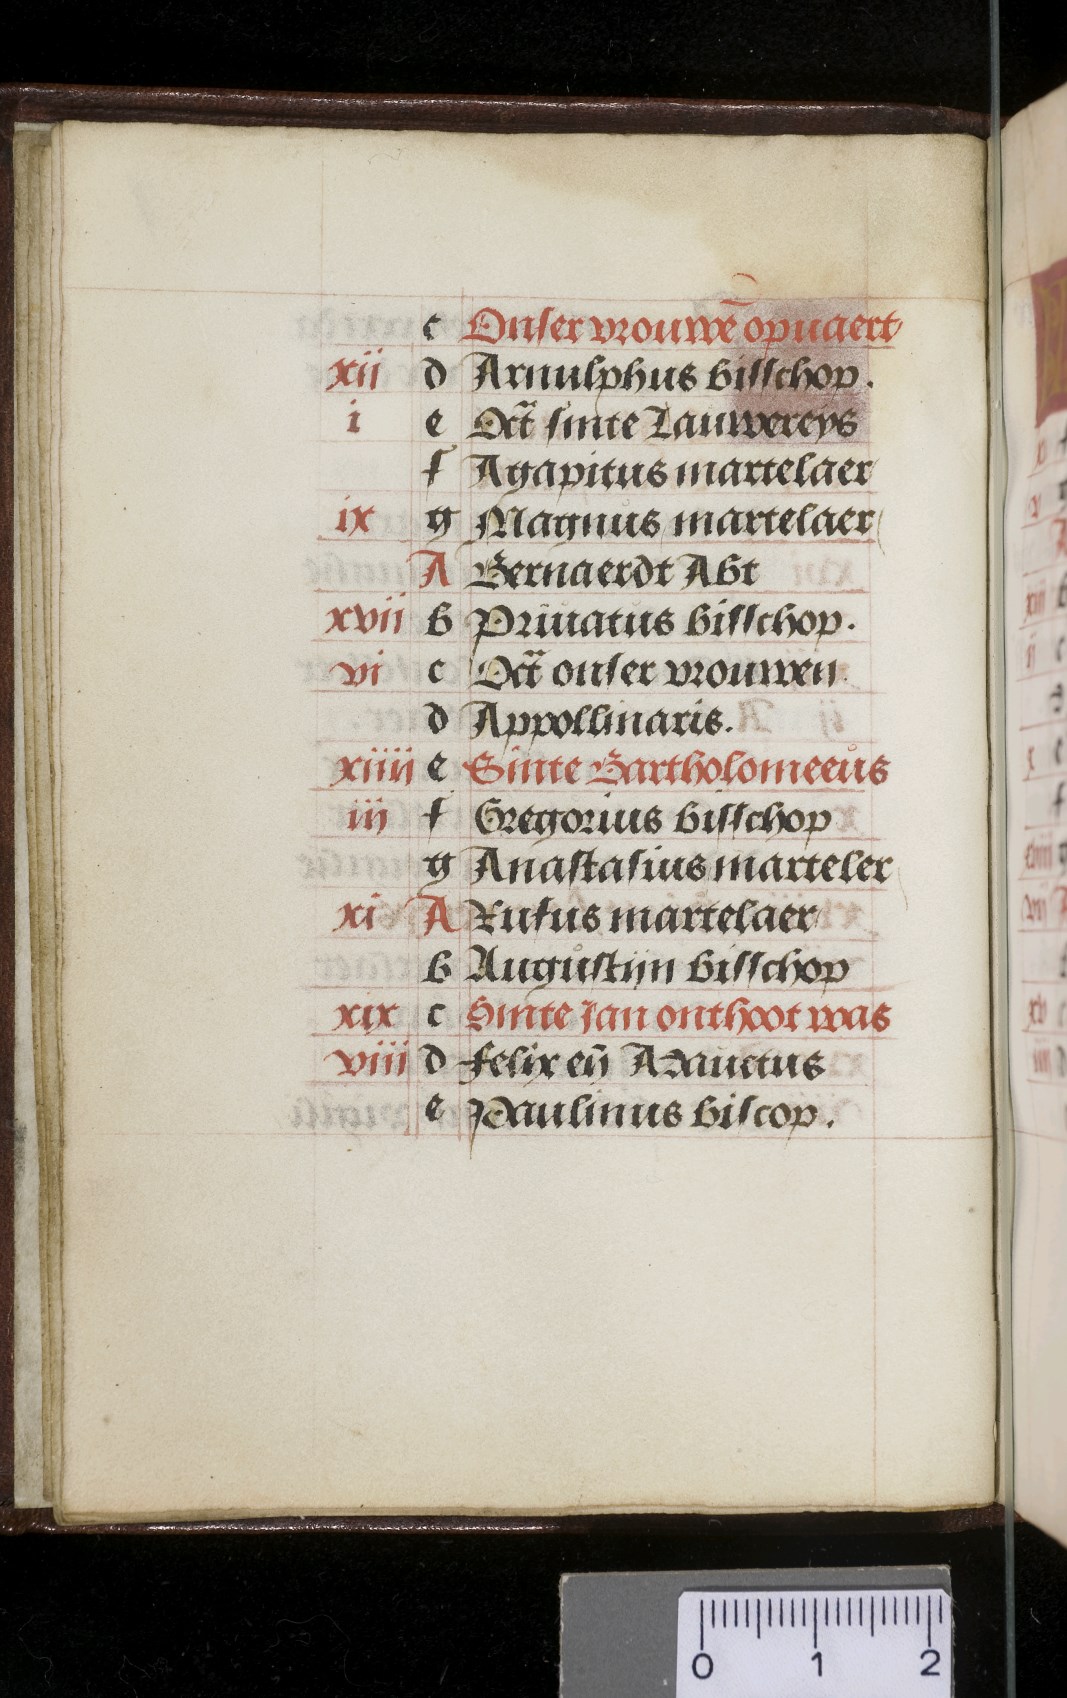 c Onser vrouwē opuaert
xii d Arnulphus bisschop.
i e Oct̄ sinte Lauwereys
f Agapitus martelaer
ix g Magnus martelaer
A Bernaerdt Abt
xvii b Priuatus bisschop.
vi c Oct̄ onser vrouwen.
d Appollinaris.
xiiij e Sinte Bartholomeeus
iij f Gregorius bisschop
g Anastasius marteler
xi A Rufus martelaer
b Augustijn bisschop
xix c Sinte Jan onthoot was
viii d Felix eñ Adauctus
e Paulinus biscop.
0 1 2